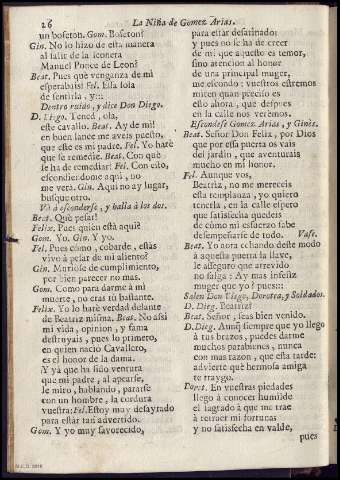 26
La Niña de Gomez Arias.
un bofeton. Gom. Bofeton?
Gin. No lo hizo de esta manera
al salir de la leonera
Manuel Ponce de Leon?
Beat. Pues què venganza de mi
esperabais? Fel. Ella sola
de sentirla, y:::
Dentro ruido, y dice Don Diego.
D. Diego. Tened, ola,
este cavallo. Beat. Ay de mi!
en buen lance me aveis puesto,
que este es mi padre. Fel. Yo harè
que se remedie. Beat. Con què
se ha de remediar? Fel. Con esto,
esconderdome aqui, no
me verà. Gin. Aqui no ay lugar,
busque otro.
Và à esconderse, y halla à los dos.
Beat. Què pesar!
Felix. Pues quien està aqui?
Gom. Yo. Gin. Y yo.
Fel. Pues còmo, cobarde, estàs
vivo à pesar de mi aliento?
Gin. Muriose de cumplimiento,
por bien parecer no mas.
Gom. Como para darme à mi
muerte, no eras tù bastante.
Felix. Yo lo harè verdad delante
de Beatriz misma. Beat. No assi
mi vida, opinion, y fama
destruyais, pues lo primero,
en quien naciò Cavallero,
es el honor de la dama.
Y yà que ha sido ventura
que mi padre, al apearse,
le miro, hablando, pararse
con un hombre, la cordura
vuestra: Fel. Estoy muy desayrado
para estàr tan advertido.
Gom. Y yo muy favorecido,
para estàr desatinado:
y pues no se ha de creer
de mi que aquesto es temor,
sino atencion al honor
de una principal muger,
me escondo: vuestros estremos
miren quan preciso es
esto ahora, que despues
en la calle nos verèmos.
Escondese Gomez Arias, y Ginès.
Beat. Señor Don Felix, por Dios
que por essa puerta os vais
del jardin, que aventurais
mucho en mi honor.
Fel. Aunque vos,
Beatriz, no me mereceis
esta templanza, yo quiero
tenerla, en la calle espero
que satisfecha quedeis
de còmo mi esfuerzo sabe
desempeñarse de todo. Vase.
Beat. Yo aora echando deste modo
à aquesta puerta la llave,
le asseguro que atrevido
no salga: Ay mas infeliz
muger que yo? pues:::
Salen Don Diego, Dorotea, y Soldados.
D. Dieg. Beatriz?
Beat. Señor, seas bien venido.
D. Dieg. Aunq siempre que yo llego
à tus brazos, puedes darme
muchos parabienes, nunca
con mas razon, que esta tarde:
advierte què hermosa amiga
te traygo.
Dorot. En vuestras piedades
llego à conocer humilde
el sagrado à que me trae
à retraer mi fortunas
y no satisfecha en valde,
pues